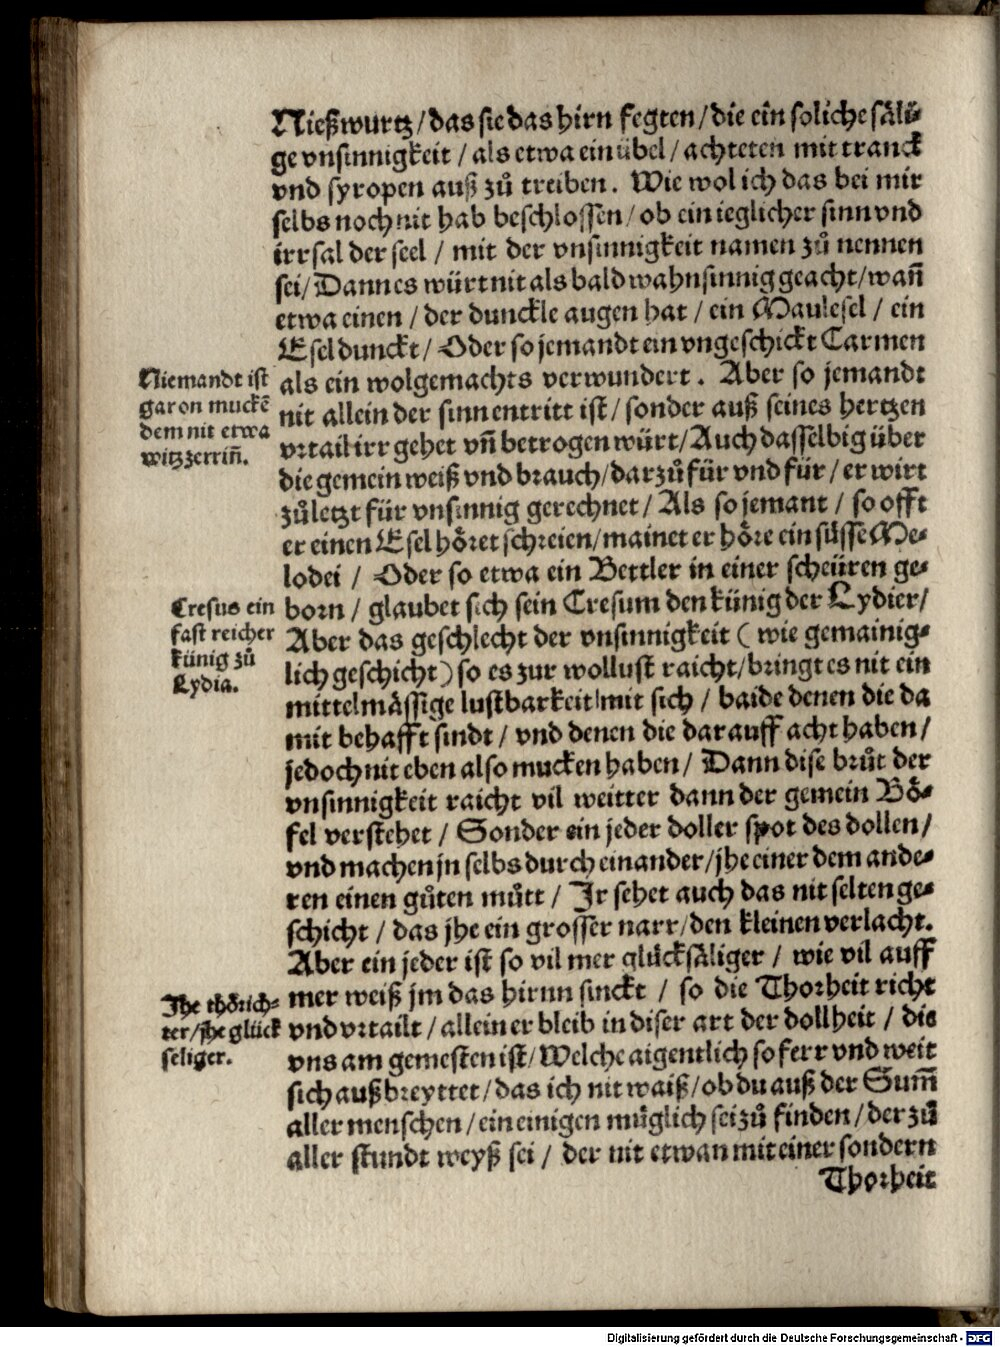 Nießwurtz / das sie das hirn fegten / die ein soliche säli⸗
ge vnsinnigkeit / als etwa ein übel / achteten mit tranck
vnd syropen auß zů treiben. Wie wol ich das bei mir
selbs noch nit hab beschlossen / ob ein ieglicher sinn vnd
irrsal der seel / mit der vnsinnigkeit namen zů nennen
sei / Dann es würt nit als bald wahnsinnig geacht / wañ
etwa einen / der dunckle augen hat / ein Maulesel / ein
Esel dunckt / Oder so jemandt ein vngeschickt Carmen
als ein wolgemachts verwundert. Aber so jemandt
nit allein der sinn entritt ist / sonder auß seines hertzen
vrtail irr gehet vñ betrogen würt / Auch dasselbig über
die gemein weiß vnd brauch / darzů für vnd für / er wirt
zůletzt für vnsinnig gerechnet / Als so jemant / so offt
er einen Esel höret schreien / mainet er höre ein süsse Me⸗
lodei / Oder so etwa ein Bettler in einer scheüren ge⸗
born / glaubet sich sein Cresum den künig der Lydier /
Aber das geschlecht der vnsinnigkeit ( wie gemainig⸗
lich geschicht ) so es zur wollust raicht / bringt es nit ein
mittelmässige lustbarkeit mit sich / baide denen die da
mit behafft sindt / vnd denen die darauff acht haben /
jedoch nit eben also mucken haben / Dann dise brůt der
vnsinnigkeit raicht vil weitter dann der gemein Bö⸗
fel verstehet / Sonder ein jeder doller spot des dollen /
vnd machen jn selbs durch einander / jhe einer dem ande⸗
ren einen gůten můtt / Ir sehet auch das nit selten ge⸗
schicht / das jhe ein grosser narr / den kleinen verlacht.
Aber ein jeder ist so vil mer glücksäliger / wie vil auff
mer weiß jm das hirnn sinckt / so die Thorheit richt
vnd vrtailt / allein er bleib in diser art der dollheit / die
vns am gemesten ist / Welche aigentlich so ferr vnd weit
sich außbreyttet / das ich nit waiß / ob du auß der Sum̃
aller menschen / ein einigen müglich sei zů finden / der zů
aller stundt weyß sei / der nit etwan mit einer sondern
Thorheit
Niemandt ist
gar on muckẽ
dem nit etwa
witz zerriñ.
Cresus ein
fast reicher
künig zů
Lydia.
Jhe thörich⸗
ter / jhe glück
seliger.
Digitalisierung gefördert durch die Deutsche Forschungsgemeinschaft - DFG